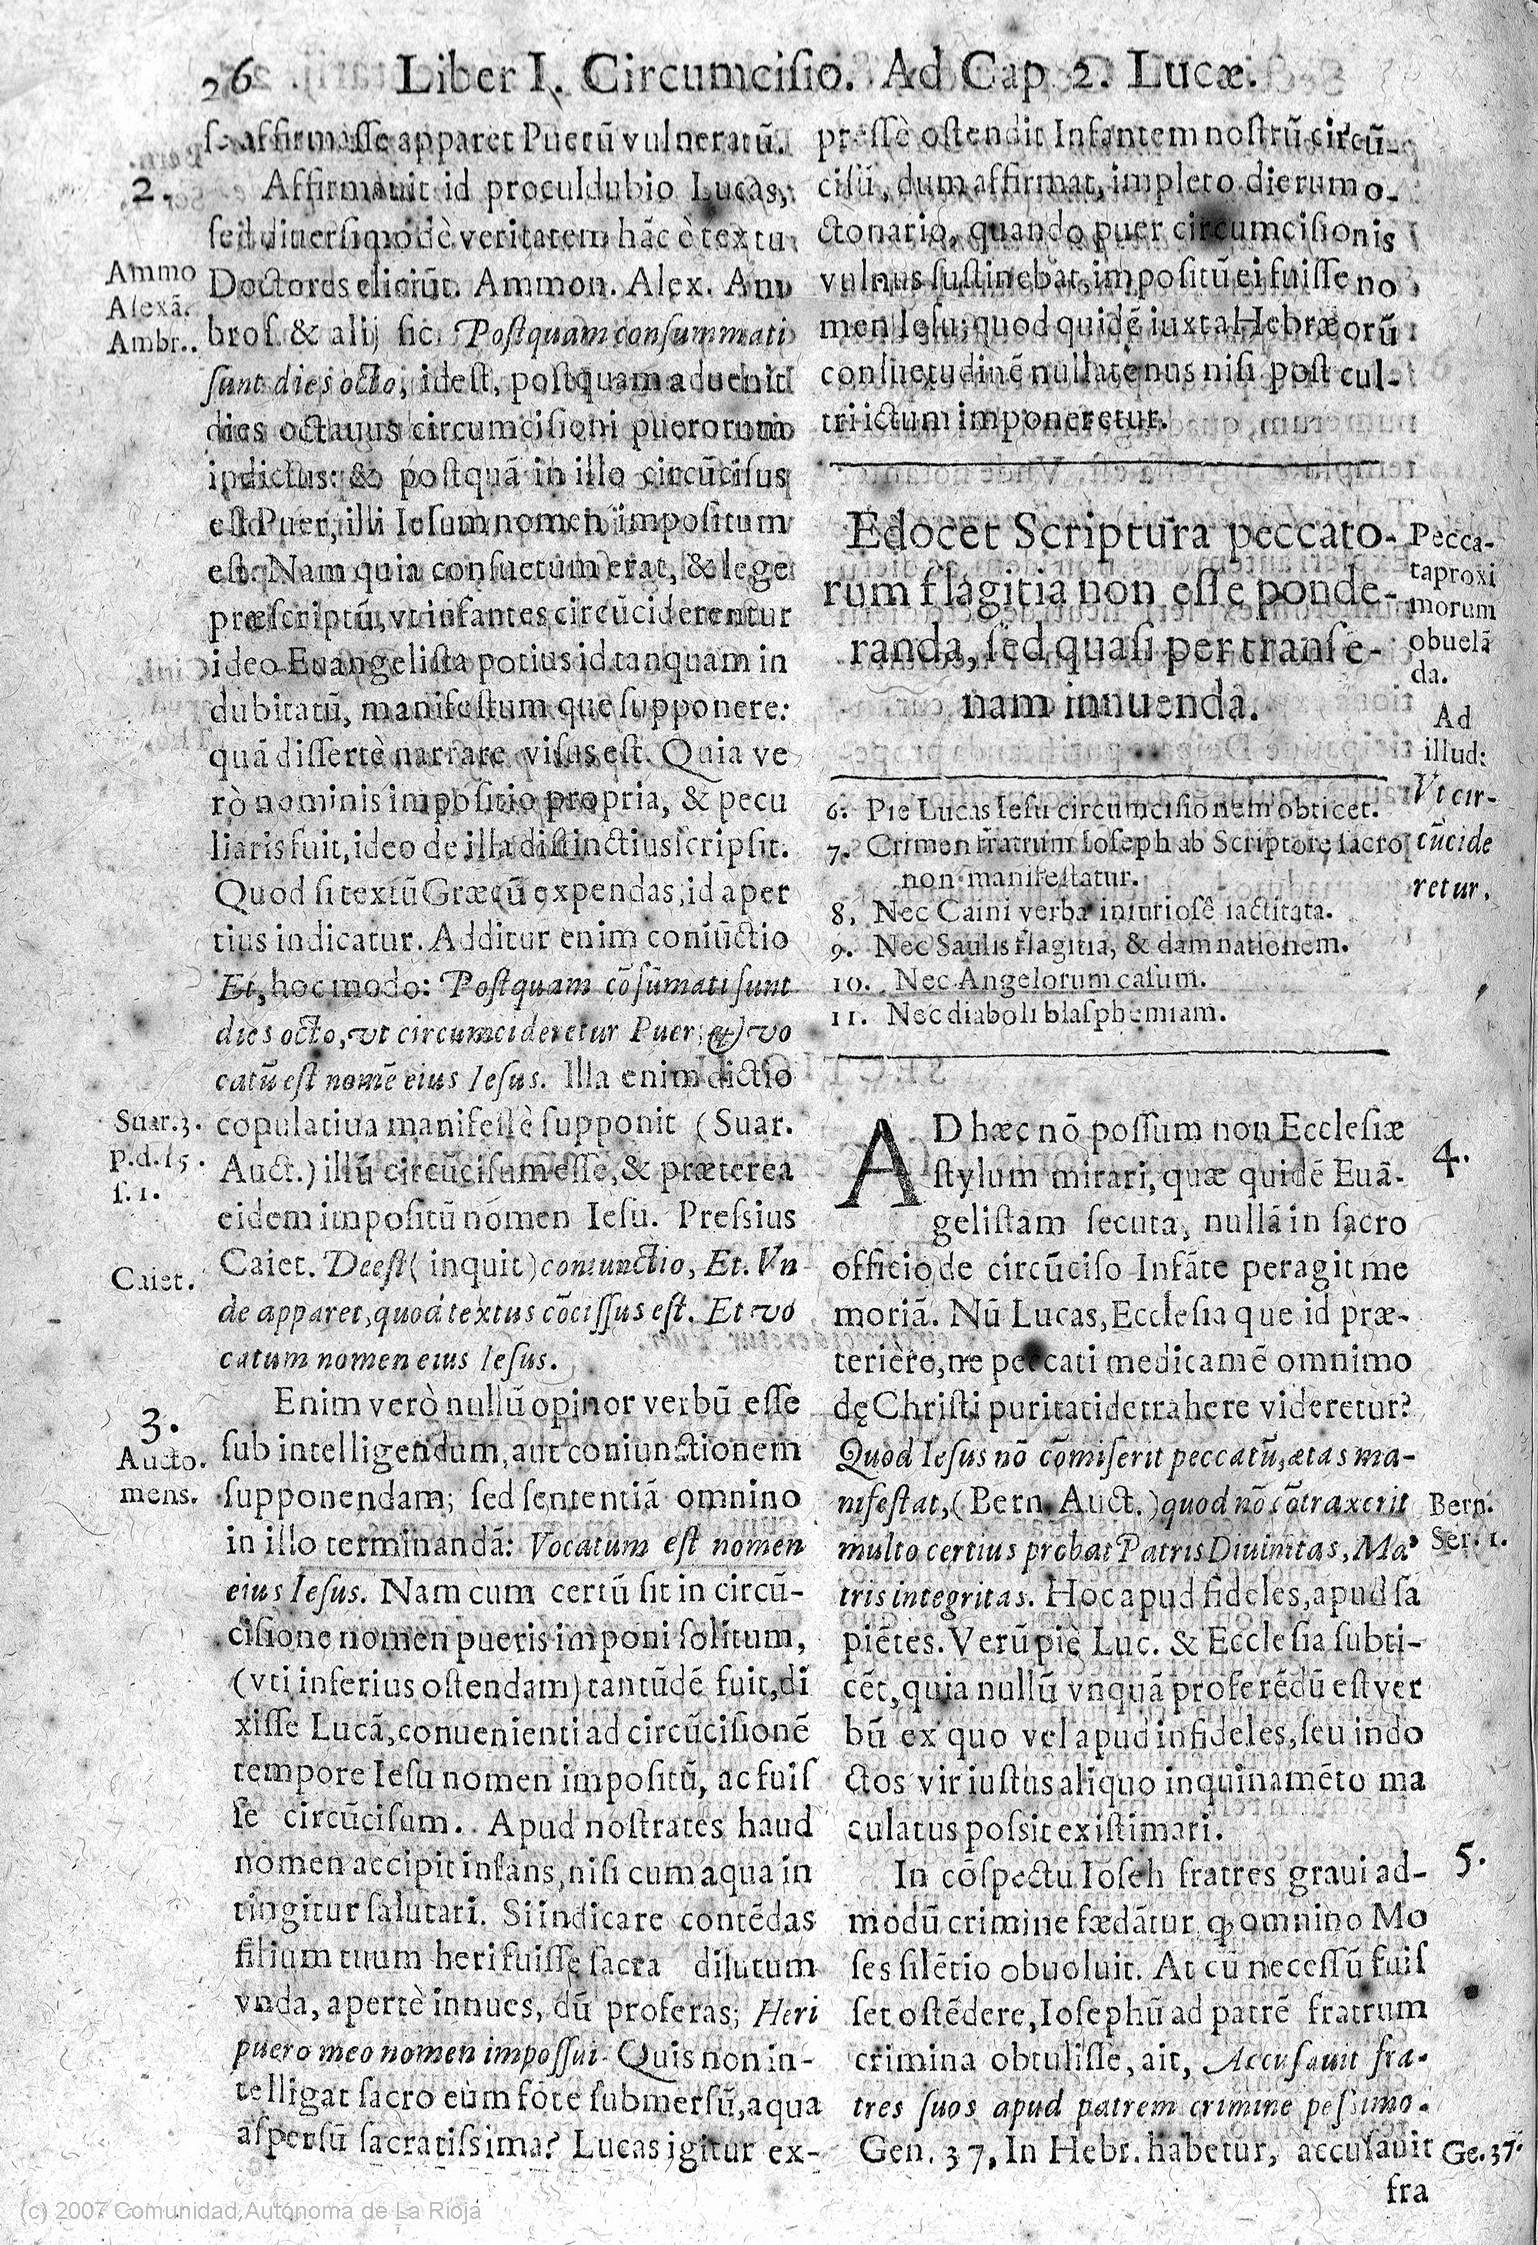 26 Liber I. Circumcisio. Ad Cap 2. Lucæ.
se affirmasse apparet Puerũ vulneratũ.
2.
Affirmauit id proculdubio Lucas,
sed diuersimodè veritatem hãc è textu
Doctores eliciũt. Ammon. Alex. Am
bros. & alij sic. Postquam consummati
sunt dies octo, idest, postquam aduenit
dies octauus circumcisioni puerorum
indictus: & postquã in illo circũcisus
est Puer, illi Iesum nomen impositum
est. Nam quia consuetum erat, & lege
præscriptũ, vt infantes circũciderentur
ideo Euangelista potius id tanquam in
dubitatũ, manifestum que supponere:
quã dissertè narrare visus est. Quia ve
rò nominis impositio propria, & pecu
liaris fuit, ideo de illa distinctius scripsit.
Quod si textũ Græcũ expendas, id aper
tius indicatur. Additur enim coniũctio
Et, hoc modo: Postquam cõsũmati sunt
dies octo, vt circumcideretur Puer, & vo
catũ est nomẽ eius Iesus. Illa enim dictio
copulatiua manifestè supponit (Suar.
Auct.) illũ circũcisum esse, & præterea
eidem impositũ nomen Iesu. Pressius
Caiet. Deest (inquit) coniunctio, Et. Vn
de apparet, quod textus cõcissus est. Et vo
catum nomen eius Iesus.
3.
Enim verò nullũ opinor verbũ esse
sub intelligendum, aut coniunctionem
supponendam; sed sententiã omnino
in illo terminandã: Vocatum est nomen
eius Iesus. Nam cum certũ sit in circũ-
cisione nomen pueris imponi solitum,
(vti inferius ostendam) tantũdẽ fuit, di
xisse Lucã, conuenienti ad circũcisionẽ
tempore Iesu nomen impositũ, ac fuis
se circũcisum. Apud nostrates haud
nomen accipit infans, nisi cum aqua in
tingitur salutari. Si indicare contẽdas
filium tuum heri fuisse sacra dilutum
vnda, apertè innues, dũ proferas; Heri
puero meo nomen impossui. Quis non in-
telligat sacro eum fõte submersũ, aqua
aspersũ sacratissima? Lucas igitur ex-
Ammo
Alexã.
Ambr..
Suar. 3.
p. d. 15.
s. 1.
Caiet.
Aucto.
mens.
pressè ostendit Infantem nostrũ circũ-
cisũ, dum affirmat, impleto dierum o-
ctonario, quando puer circumcisionis
vulnus sustinebat, impositũ ei fuisse no
men Iesu; quod quidẽ iuxta Hebræorũ
consuetudinẽ nullatenus nisi post cul-
tri ictum imponeretur.
Edocet Scriptura peccato-
rum flagitia non esse ponde-
randa, sed quasi per transe-
nam innuenda.
Pecca-
ta proxi
morum
obuelã
da.
Ad
illud:
Vt cir-
cũcide
retur.
6. Pie Lucas Iesu circumcisionem obticet.
7. Crimen fratrum Ioseph ab Scriptore sacro
non manifestatur.
8, Nec Caini verba iniuriosê iactitata.
9. Nec Saulis flagitia, & damnationem.
10. Nec Angelorum casum.
11. Nec diaboli blasphemiam.
4.
AD hæc nõ possum non Ecclesiæ
stylum mirari, quæ quidẽ Euã-
gelistam secuta, nullã in sacro
officio de circũciso Infãte peragit me
moriã. Nũ Lucas, Ecclesia que id præ-
teriere, ne peccati medicamẽ omnimo
dę Christi puritati detrahere videretur?
Quod Iesus nõ cõmiserit peccatũ, ætas ma-
nifestat, (Bern. Auct.) quod nõ cõtraxerit
multo certius probat Patris Diuinitas, Ma-
tris integritas. Hoc apud fideles, apud sa
piẽtes. Verũ piè Luc. & Ecclesia subti-
cẽt, quia nullũ vnquã proferẽdũ est ver
bũ ex quo vel apud infideles, seu indo
ctos vir iustus aliquo inquinamẽto ma
culatus possit existimari.
Bern.
Ser. 1.
5.
In cõspectu Ioseh fratres graui ad-
modũ crimine fædãtur, ꝙ omnino Mo
ses silẽtio obuoluit. At cũ necessũ fuis
set ostẽdere, Iosephũ ad patrẽ fratrum
crimina obtulisse, ait, Accusauit fra-
tres suos apud patrem crimine pessimo.
Gen. 37, In Hebr. habetur, accusauit
Ge. 37.
fra
(c) 2007 Comunidad Autónoma de La Rioja